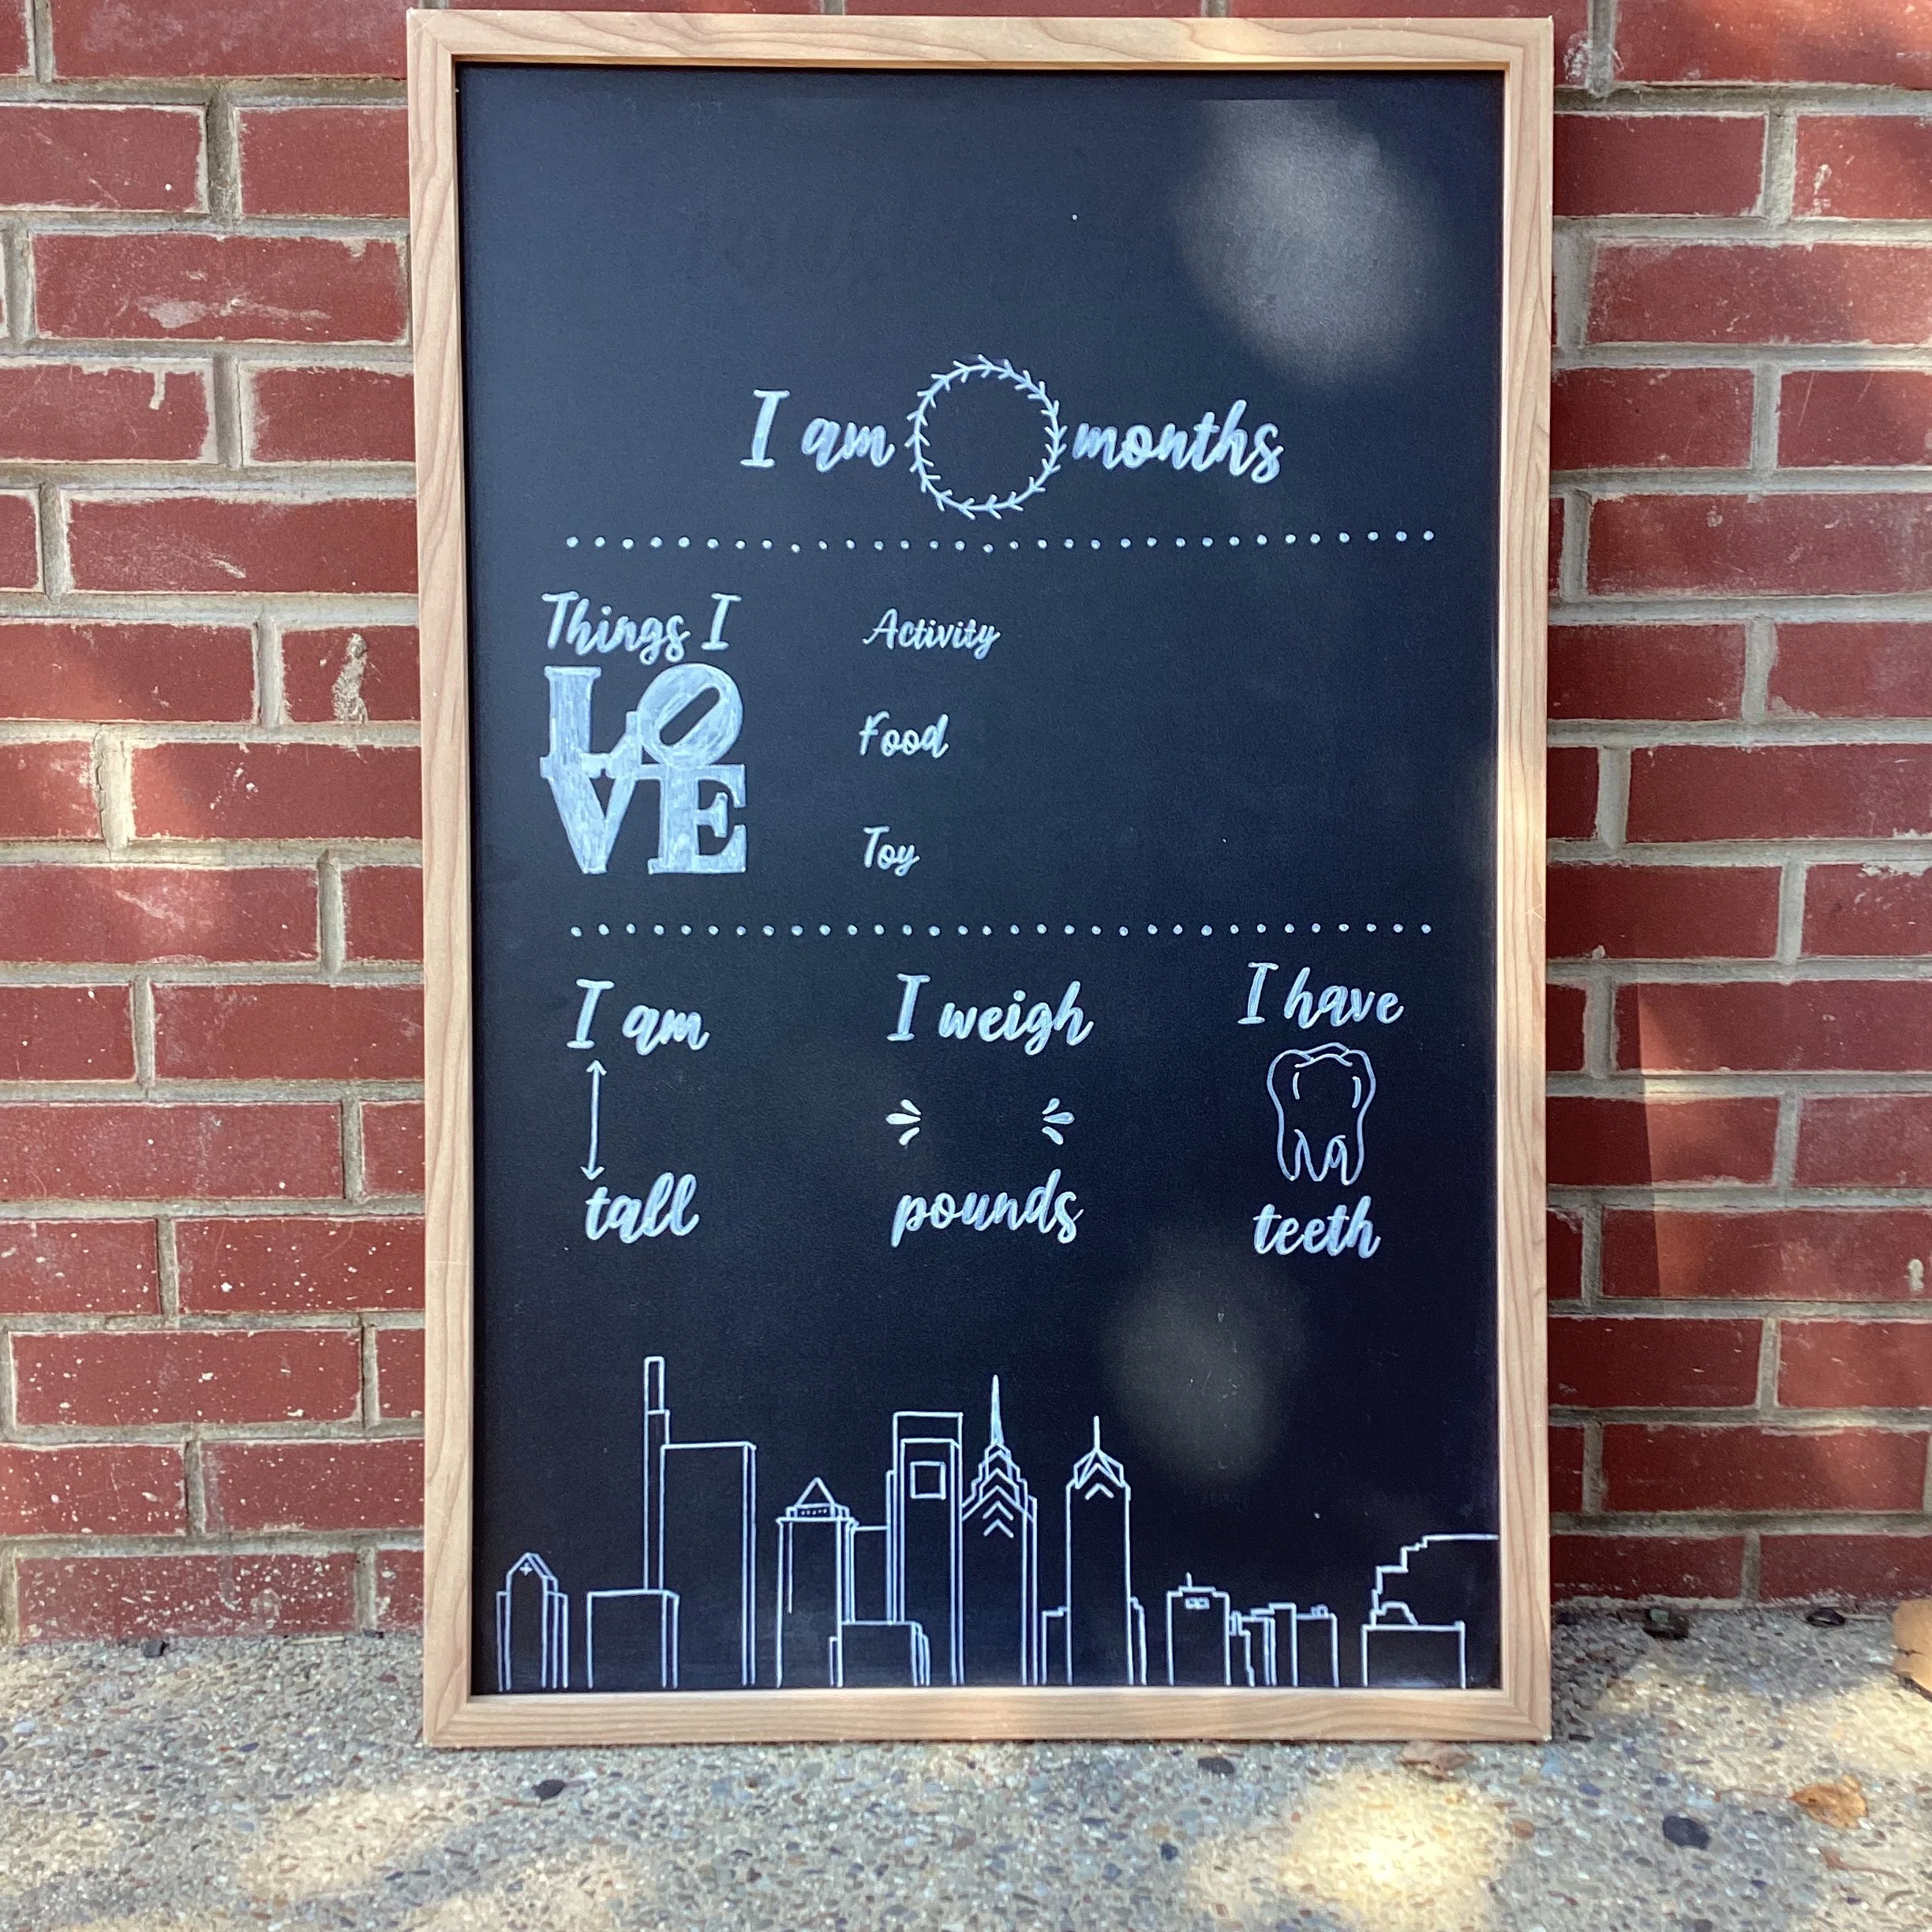 I am months
Things I
LO
VE
Activity
Food
Toy
I am
tall
I weigh
pounds
I have
teeth